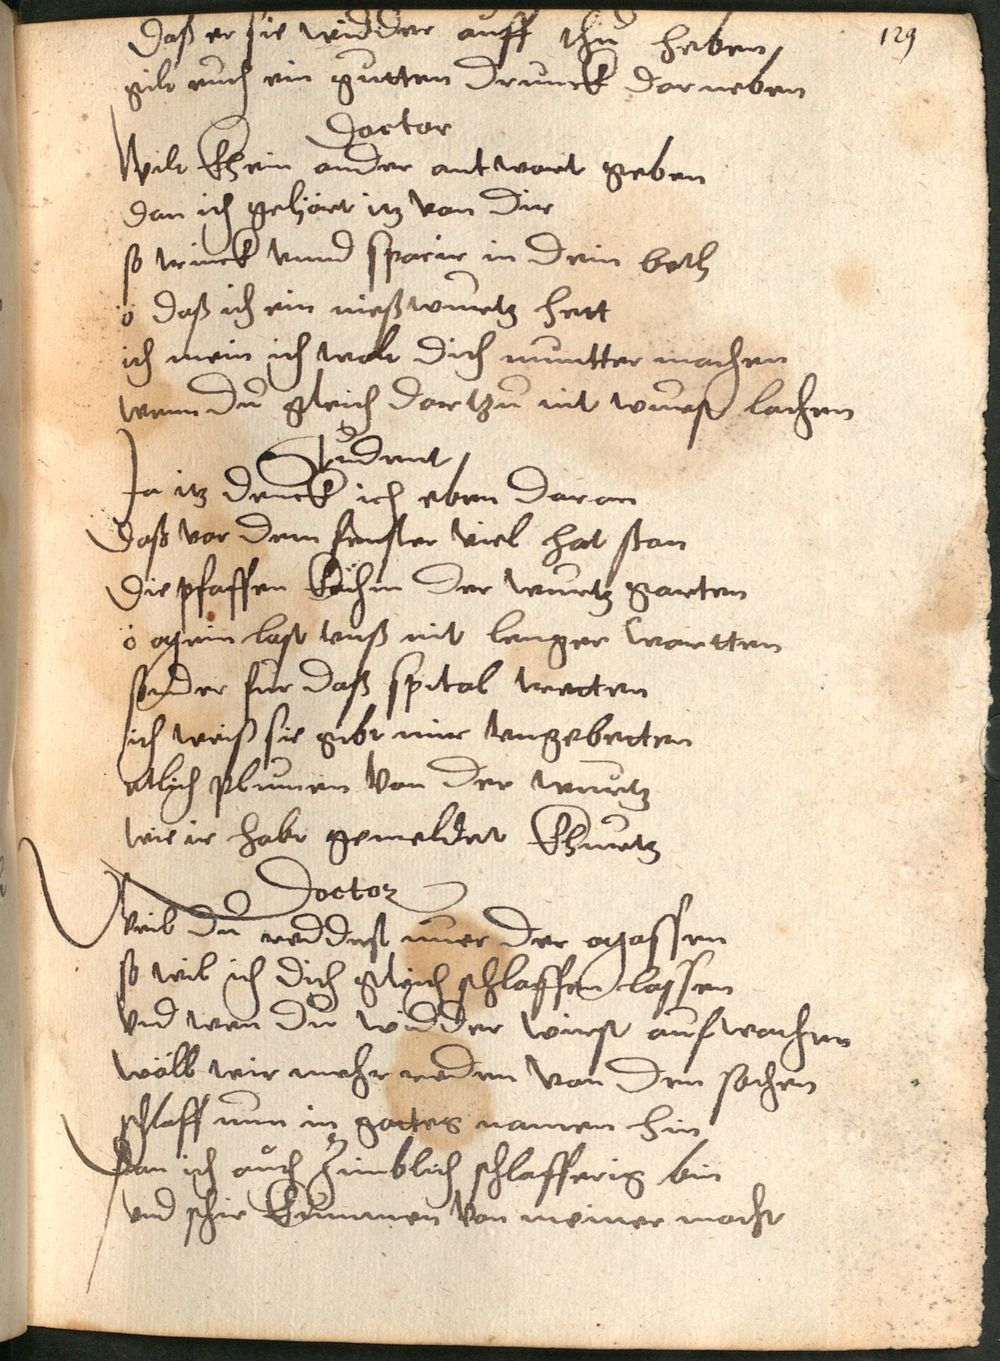 129
Daß er sie widder auff thu heben
gilt euch ein gutten drunck darneben
Doctor
Wilt khein ander antwort geben
dan ich gehört itz von dir
so trinck unnd spacir in dein beth
ö daß ich ein nießwurtz hett
ich mein ich wolt dich muntter machen
wenn du gleich dortzu nit wurst lachen
Student
Ja itz denck ich eben daran
Daß vor dem fenster viel hat stan
Die pfaffen köchin der wurtz garten
ö last unß nit lenger wartten
sonder fur daß spital tretten
ich weiß sie gibt mir ungebetten
etlich plumen von der wurtz
wie ir habt gemeldet khurtz
Doctor
Weil du reddest nuer der
so wil ich dich gleich schlaffen lassen
und wen du widder wirst aufwachen
wöll wir mehr reden von den sachen
schlaff nun in gottes namen hin
Dan ich auch zimblich schlafferig bin
und schir kummen von meiner macht